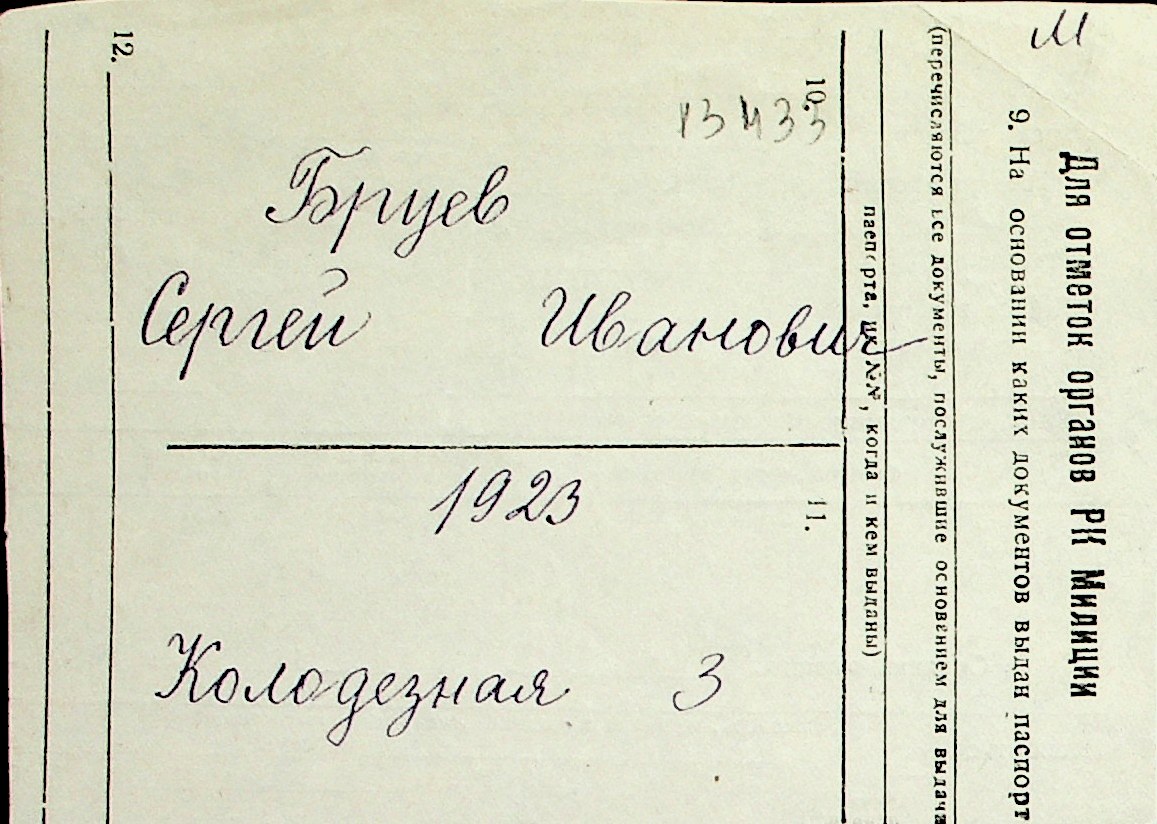 М
13433
Бруев
Сергей Иванович
1923
Колодезная 3
Для отметок органов РК Милиции
9. На основании каких документов выдан паспорт
(перечисляются все документы, послужившие основением для выдача
паспорта, их №№, когда и кем выданы)
10.
11.
12.